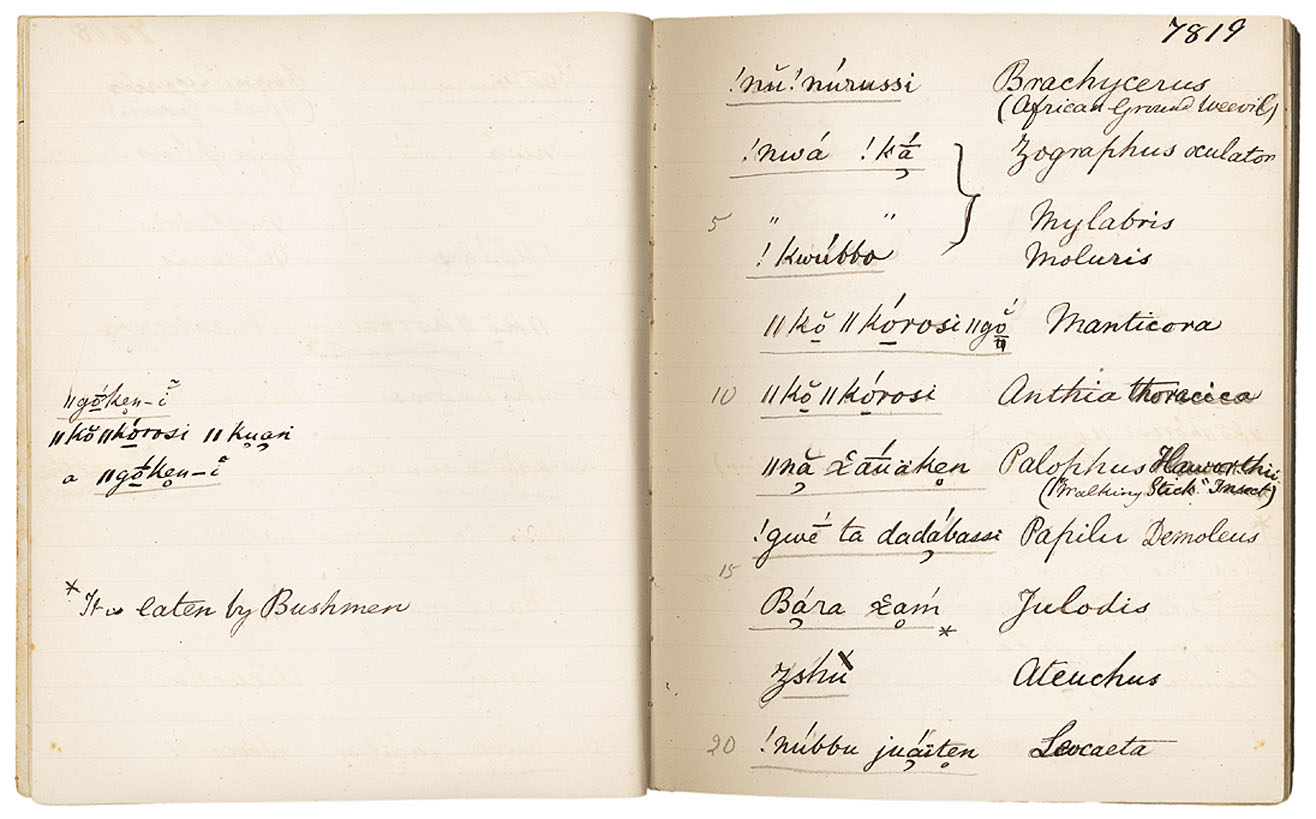 ǁgṓ̱ken̥-ĭ̃
ǁkŏ̱ǁkó̱rosi ǁku̥a̦ri
a ǁgṓ̱ken̥-ĭ̃
* It is eaten by Bushmen
7819
!nŭ!núrussi Brachycerus
(African Ground Weevil)
!nwá !kā̦́ Zographus oculator
5 " " Mylabris
!kwúbbo Moluris
ǁkŏ̱ǁkó̱rosi ǁgŏ̱́ Manticora
10 ǁkŏ̱ǁkó̱rosi Anthia thoracica
ǁnă̦ Palophus Haworthii
("Walking Stick" Insect)
!gwḗ ta dadá̦bassi Papilio Demoleus
15
Bá̦ra * Julodis
Zshŭ Ateuchus
20 !núbbu juá̦ïten̥ Leocaeta